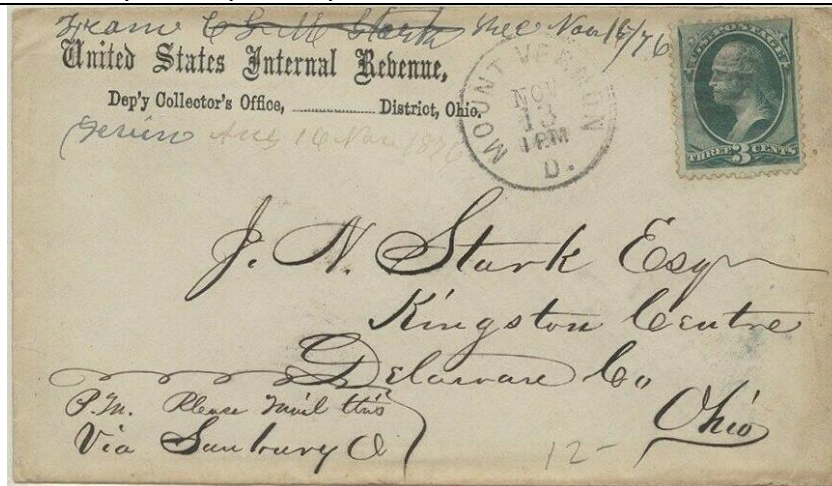 Nov 16/76
United States Internal Revenue,
Dep'y Collector's Office, ............ District, Ohio.
16 Nov 1876
MOUNT VERNON
NOV
13
1PM
O.
U.S. POSTAGE
THREE 3 CENTS
J. N. Stark Esq
Kingston Centre
Delaware Co
Ohio
P.M. Please Mail this
Via Sunbury O
12-